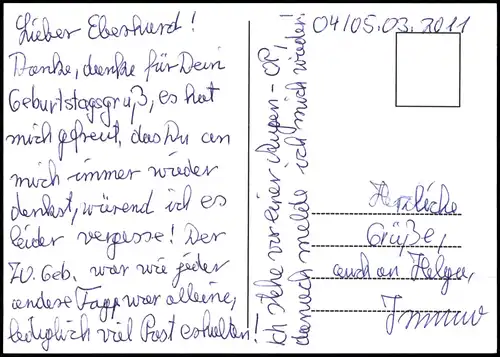 Lieber Eberhard!
Danke, danke für Dein
Geburtstagsgruß, es hat
mich gefreut, das Du an
mich immer wieder
denkst, würend ich es
leider vergesse! Der
70. Geb. war wie jeder
andere Tag war alleine,
lediglich viel Post erhalten!
Ich stehe vor einer Augen-OP,
danach melde ich mich wieder!
04/05.03.2011
Herzliche
Grüße,
auch an Helga,